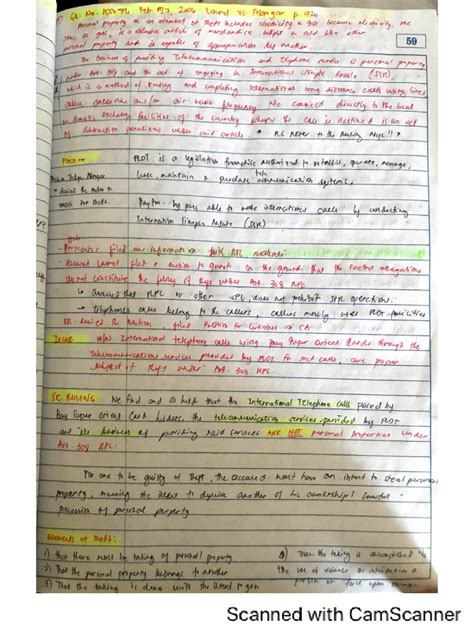 G.R. No. 155076 Feb. 27, 2006 Laurel vs. Abrogar p. 920
personal property as an element of theft includes electricity & gas because electricity, the
same as gas, is a valuable article of merchandise, bought & sold like other
personal property and is capable of appropriation by another.
59
The business of providing Telecommunication and Telephone service is personal property
under Art. 308 and the act of engaging in International Simple Resale (ISR)
which is a method of routing and completing international long distance calls using lines
cables antennae and/or air wave frequency connected directly to the local
or domestic exchange facilities of the country where the call is destined is an act
of subtraction penalized under said article * the ruling
FACTS → PLDT is a legislative franchise authorized to establish, operate, manage,
lease, maintain & purchase telecommunication systems.
denied the motion to
quash for theft.
able to make international calls by conducting
International Simple Resale (ISR)
- Prosecutor filed an information
- Accused Laurel filed a motion to quash - on the ground that the factual allegations
do not constitute the felony of theft under Art. 308 RPC
RPC or other SPL does not prohibit ISR operations.
- telephone calls belong to the callers, callers merely uses PLDT facilities
RTC - denied the motion, filed Petition for Certiorari w/ CA
ISSUE W/N International telephone calls using Bay Super Orient Cards through the
telecommunication services provided by PLDT for such calls, are proper
subject of theft under Art. 308 RPC.
SC RULING We find and so hold that the International Telephone calls placed by
Bay Super Orient Card holders, the telecommunication services provided by PLDT
and its business of providing said services ARE NOT personal properties under
Art. 308 RPC.
For one to be guilty of theft, the accused must have an intent to steal personal
property, meaning the intent to deprive another of his ownership / lawful
possession of personal property
Elements of Theft:
1) That there must be taking of personal property
2) That the personal property belongs to another
3) That the taking is done with the intent to gain
That the taking is accomplished w/o
the use of violence or intimidation
person or force upon things.
Scanned with CamScanner